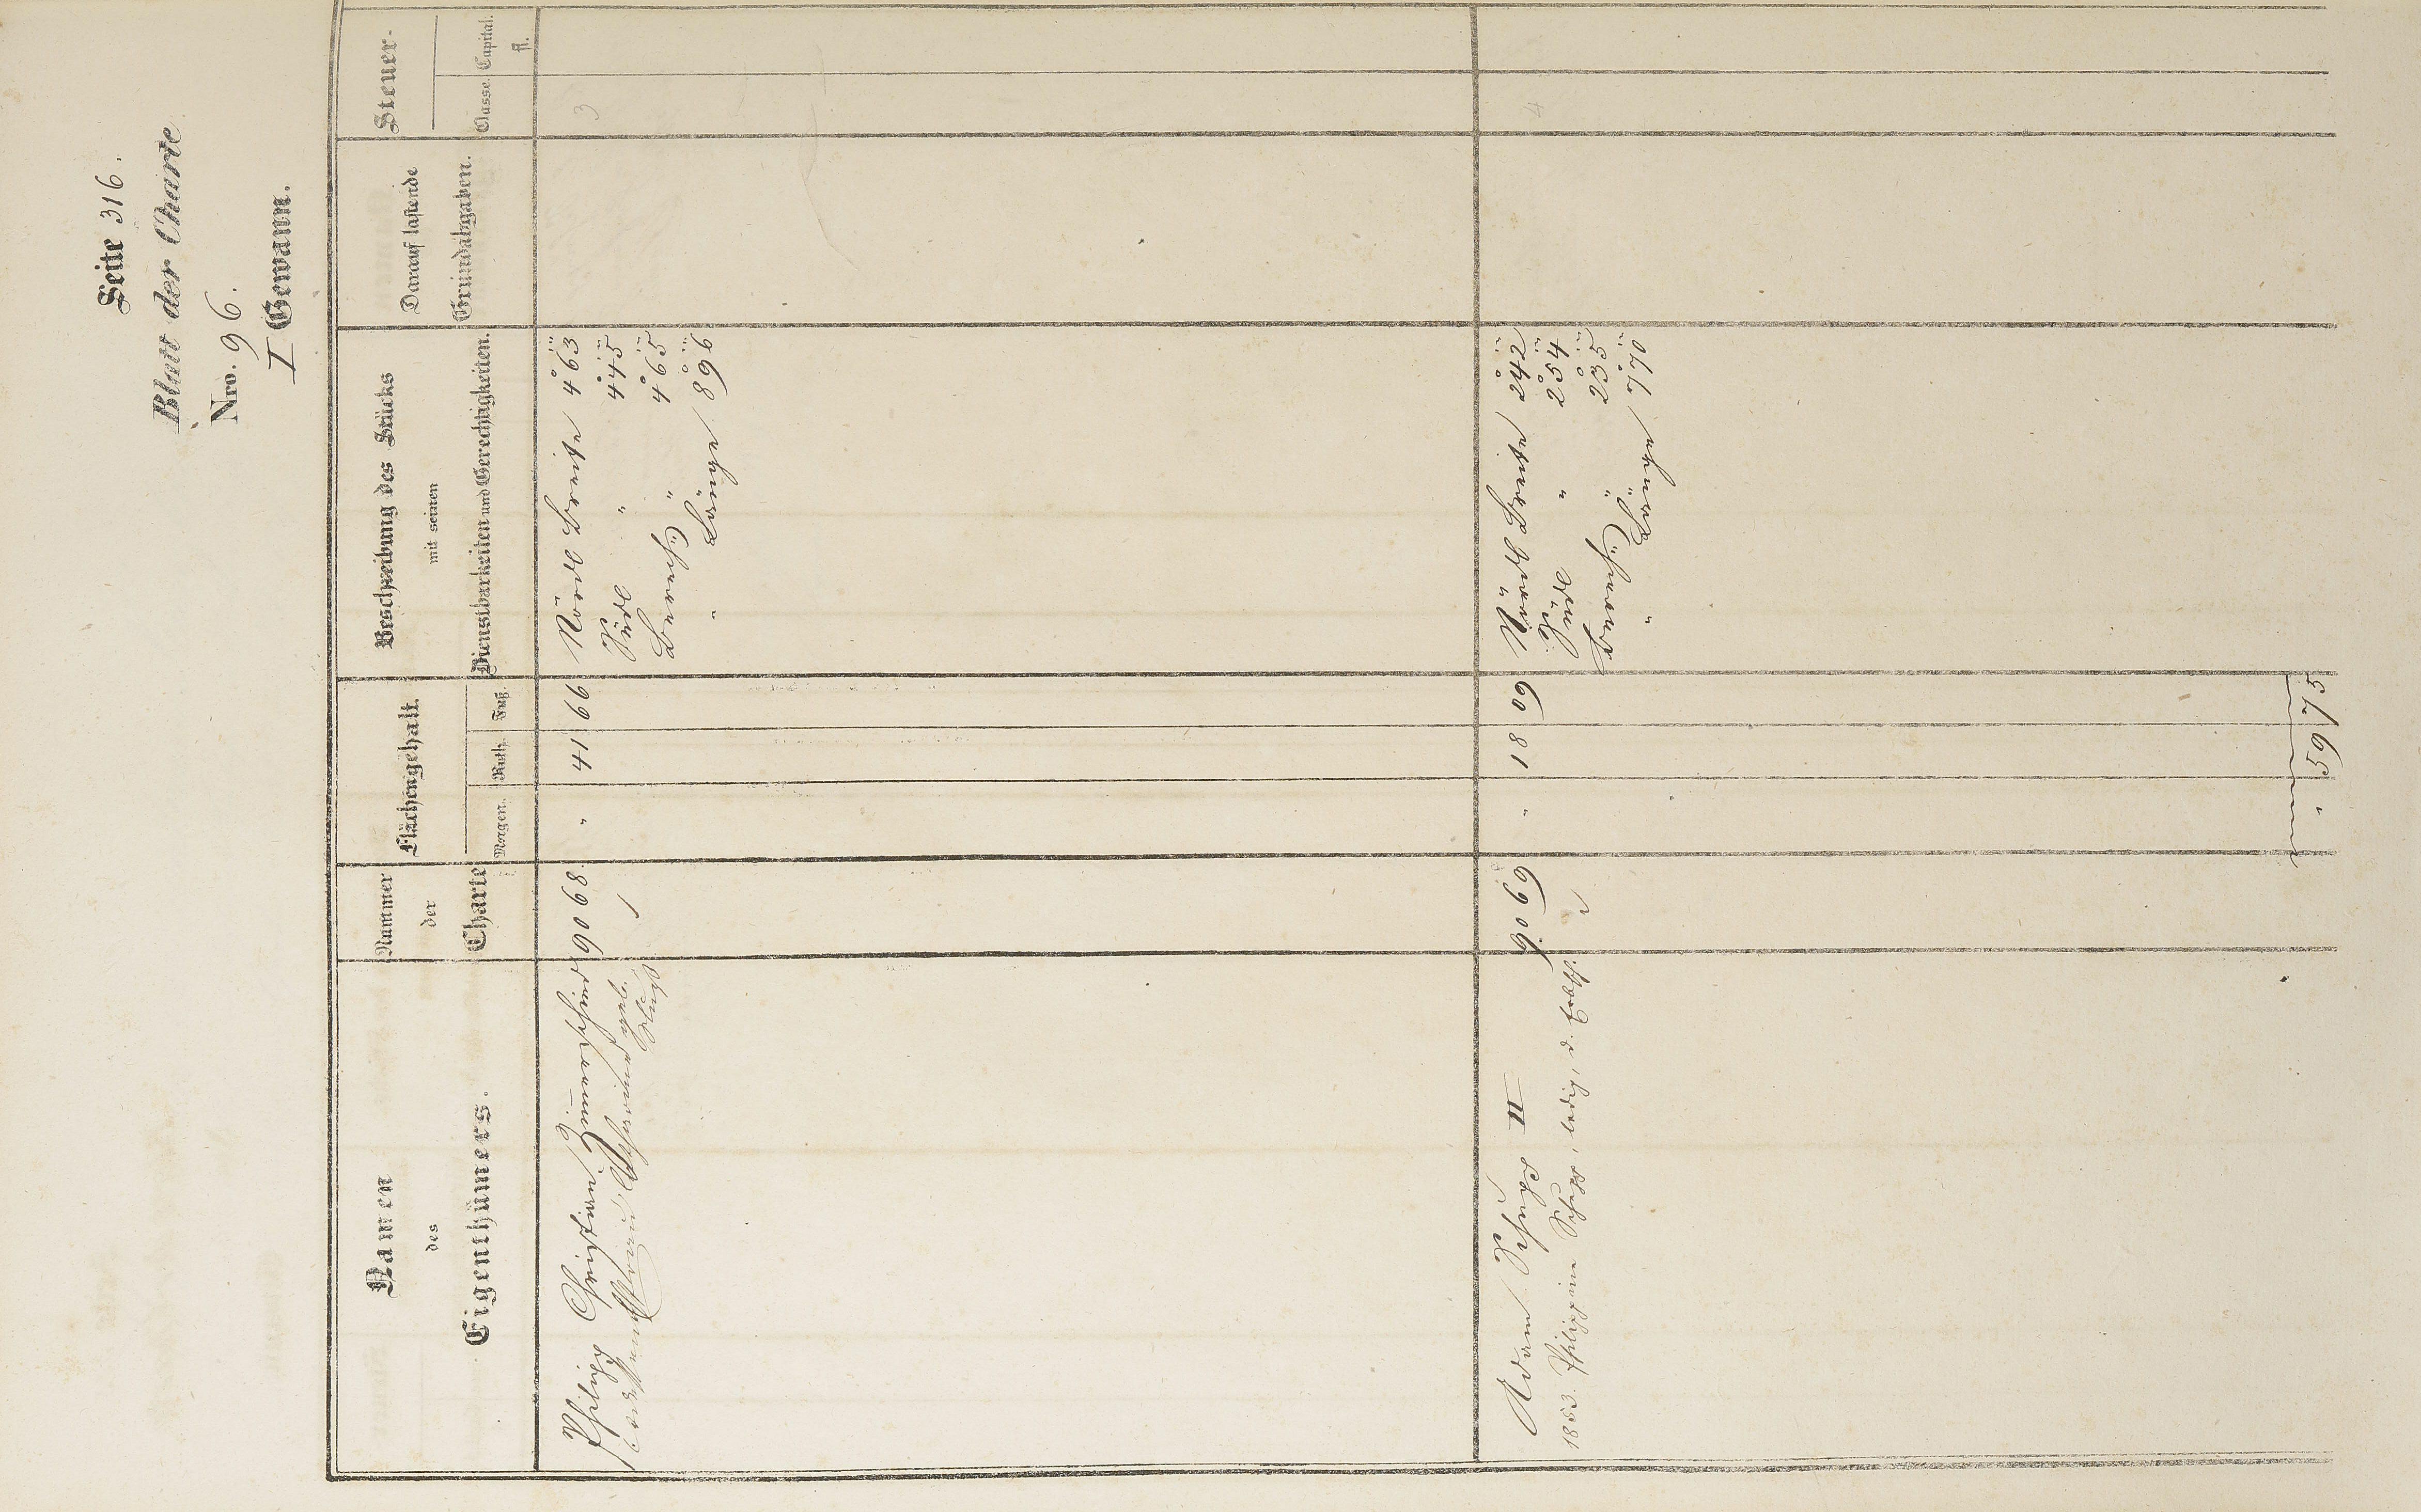 Seite 316.
Blatt der Charte
Nro. 96.
I Gewann.
Namen
des
Eigenthümers.
Nummer
der
Charte
Flächengehalt.
Morgen. Ruth. Fuß.
Beschreibung des Stücks
mit seinen
Dienstbarkeiten und Gerechtigkeiten.
Darauf lastende
Grundabgaben.
Steuer-
Classe. Capital.
fl.
Philipp Christian Zimmerschied 9068 " 41 66 Nördl Breite 463 3
1 Südl " 445
Berech " 465
" Länge 896
Adam Schupp II 9069 " 18 09 Nördl Breite 242 4
1853. Philippine Schupp, ledig, d. Erbsch. 2 Südl " 254
Berech " 235
" Länge 770
" 59 75